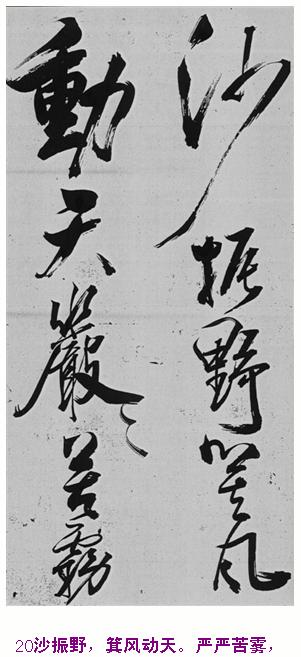 沙振野箕风
動天嚴〻苦霧
20沙振野，箕风动天。严严苦雾，